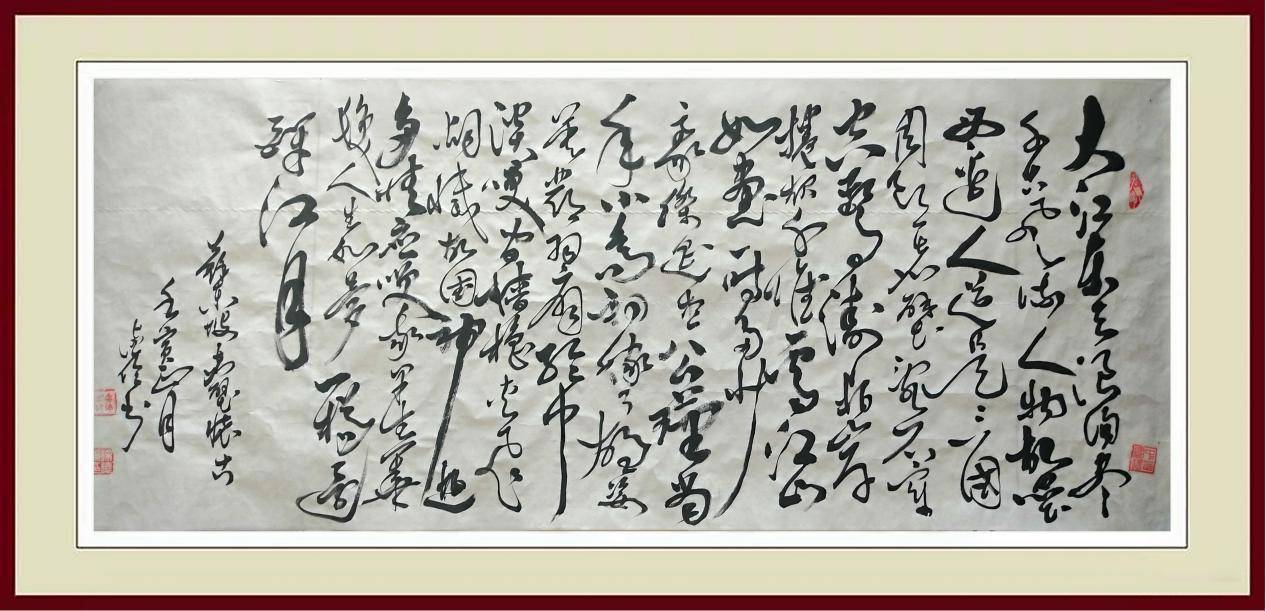 大江东去浪淘尽
千古风流人物故垒
西边人道是三国
周郎赤壁乱石穿
空惊涛拍岸
捲起千堆雪江山
如画一时多少
豪傑遥想公瑾当
年小乔初嫁了雄姿
英发羽扇纶巾
谈笑间樯橹灰飞
烟灭故国神游
多情应笑我早生华
发人生如梦一樽还
酹江月
苏东坡赤壁怀古
壬寅正月
书